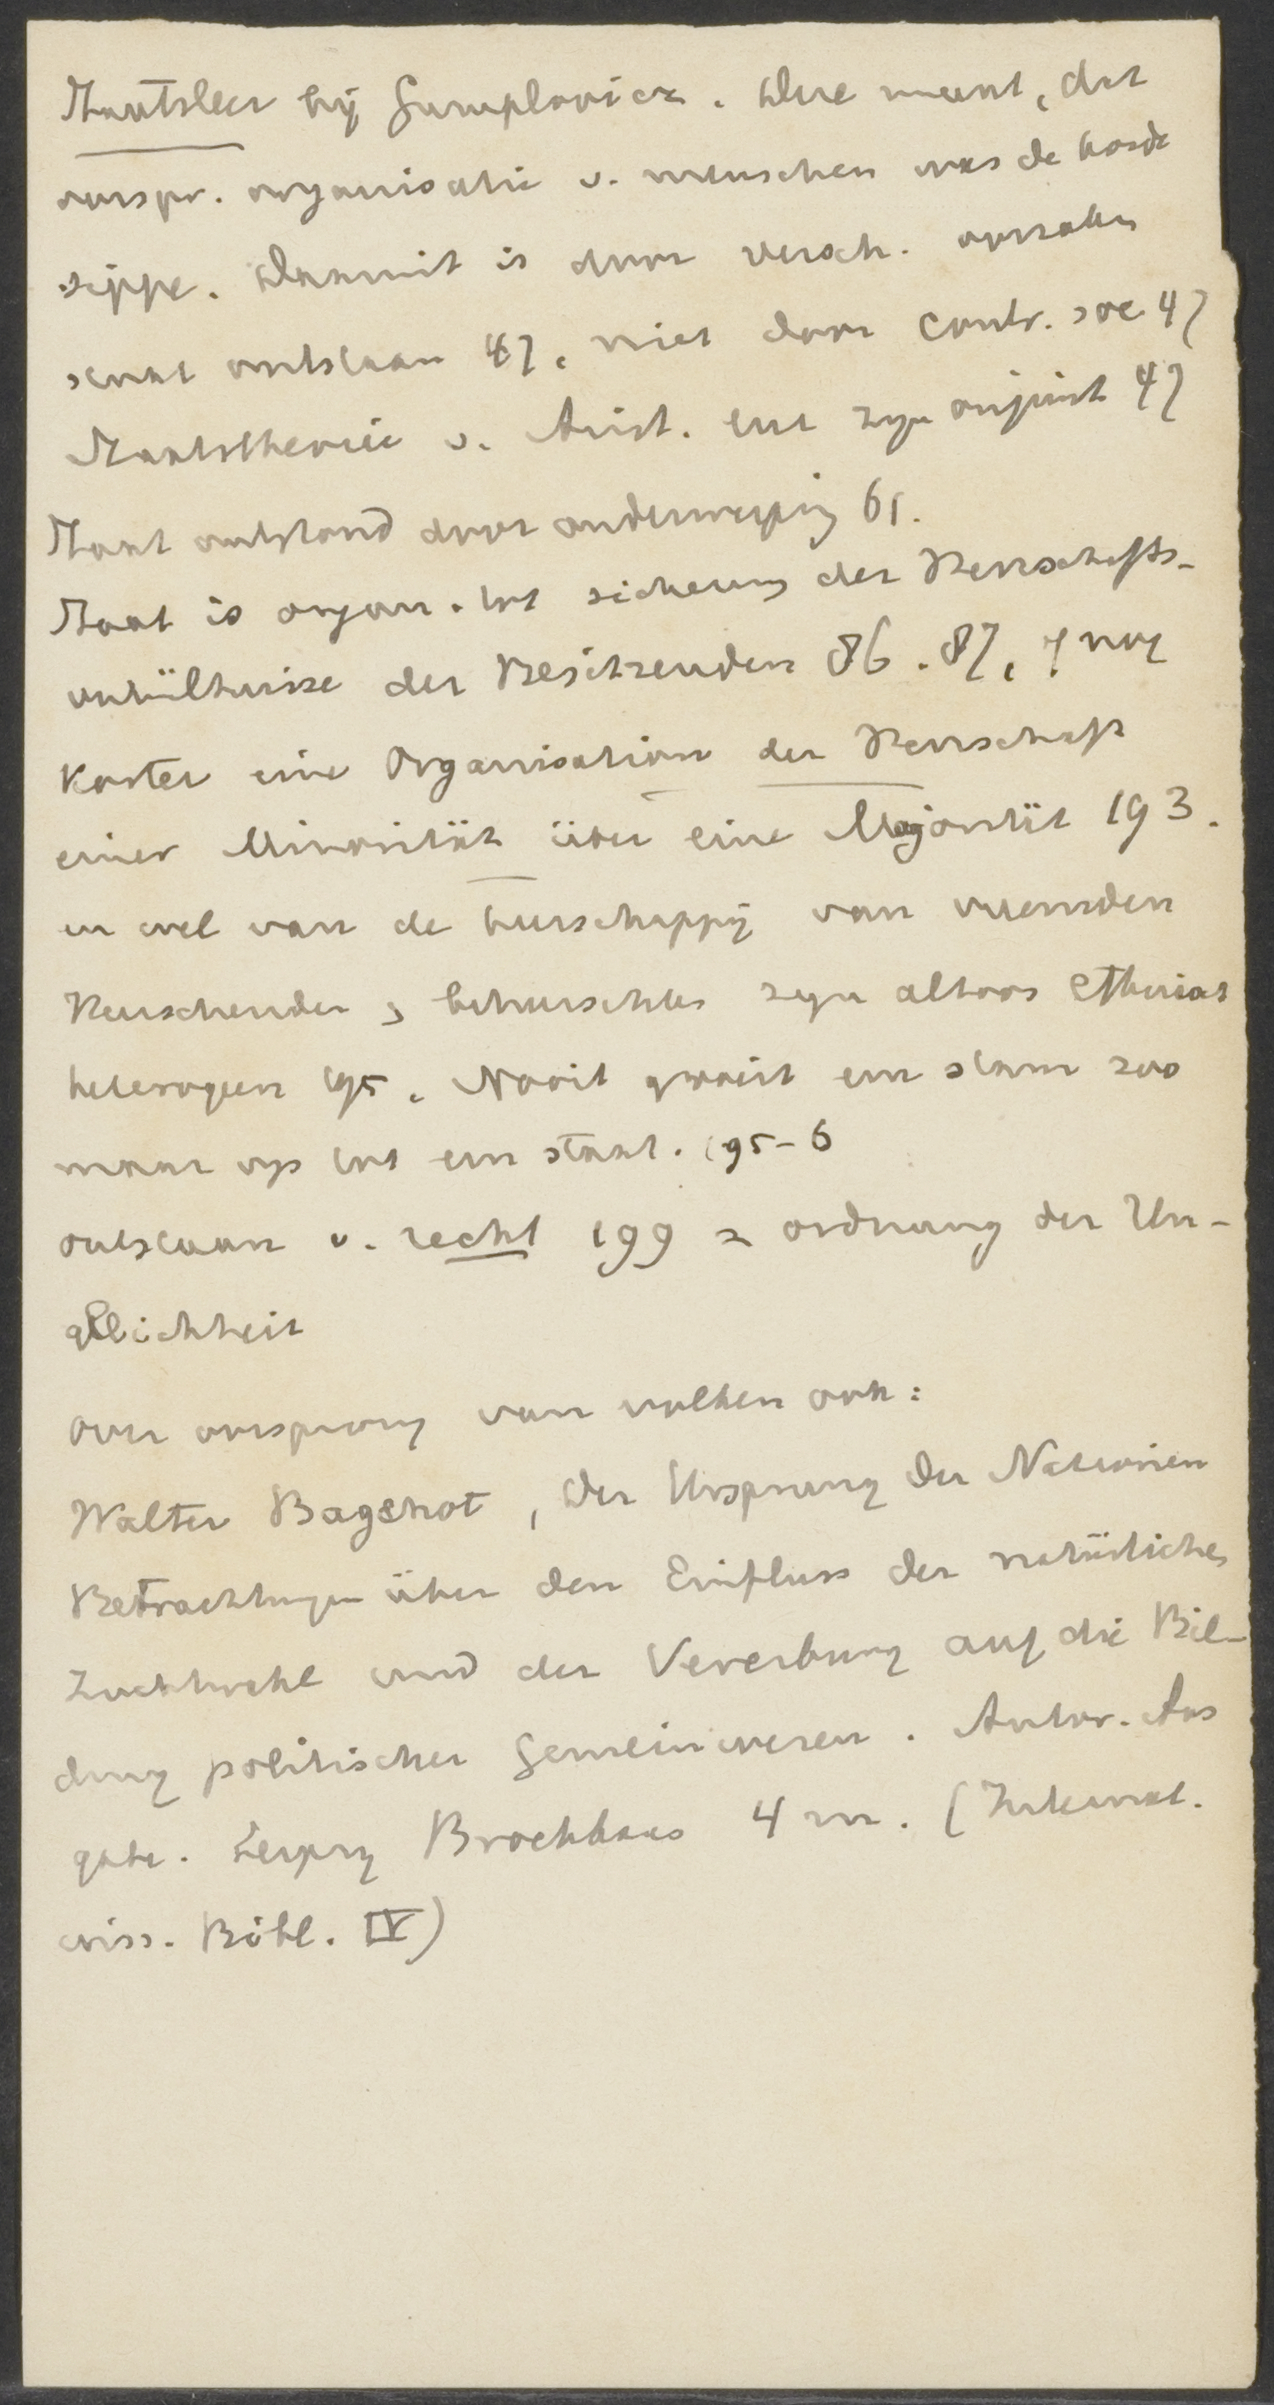 Staatsleer bij Gumplovicz. Deze meent, dat
oorspr. organisatie v. menschen was de horde
sippe. Daaruit is door versch. oorzaken
staat ontstaan 47, niet door contr. soc 47
Staatstheorie v. Arist. enz zyn onjuist 47
Staat ontstond door onderwerping 61.
Staat is organ. tot sicherung der Herrschafts-
verhältnisse der Besitzenden 86. 87, of nog
korter eine Organisation der Herrschaft
einer Minorität über eine Majorität 193.
en wel van de heerschappij van vreemden
Heerschenden & beheerschten zyn altoos ethnisch
heterogeen 195. Nooit groeit een stam zoo
maar op tot een staat. 195-6
ontstaan v. recht 199 = ordnung der Un-
gleichheit
Over oorsprong van volken ook:
Walter Bagehot, Der Ursprung der Nationen
Betrachtungen über den Einfluss der natürlichen
Zuchtwahl und der Vererbung auf die Bil-
dung politischer Gemeinwesen. Autor. Aus
gabe. Leipzig Brockhaus 4 m. (Internat.
wiss. Bibl. IV)